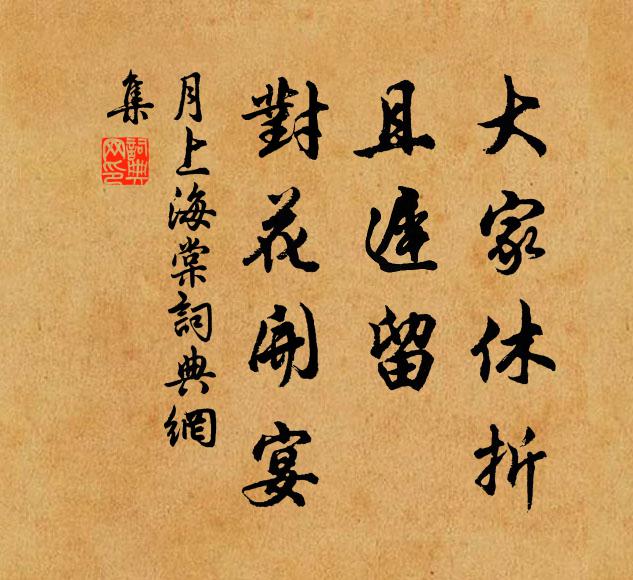 大家休折
且遲留
對花開宴
月上海棠詞典網
集
詞典
网印